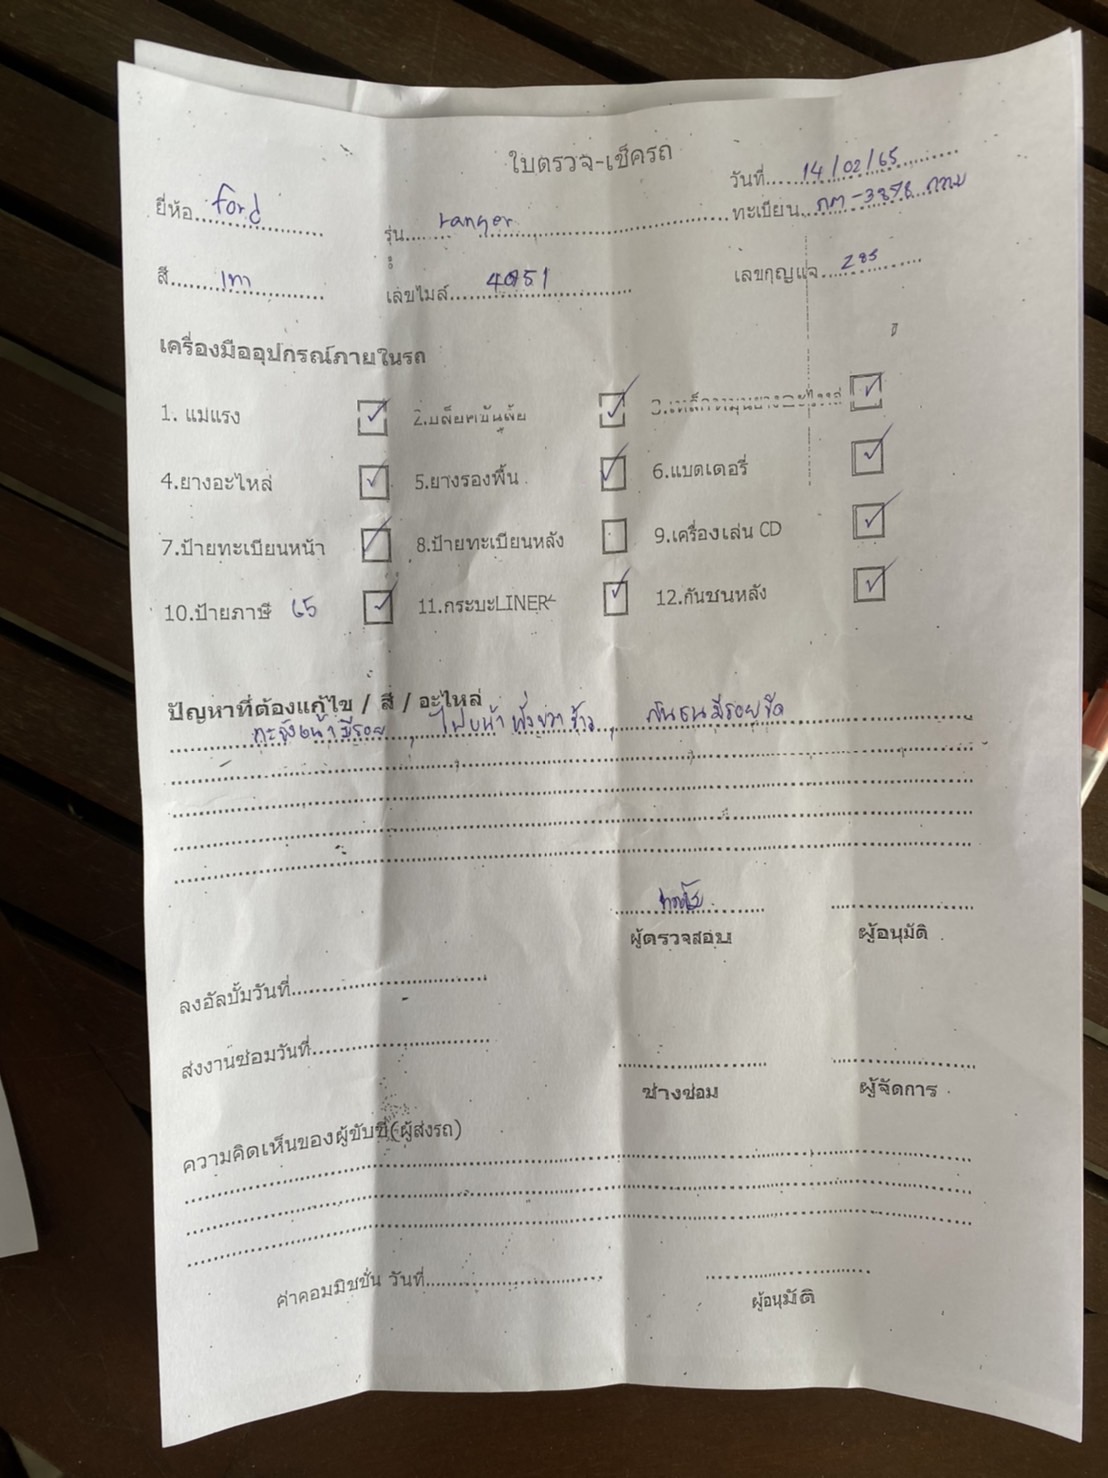 ใบตรวจ-เช็ครถ
วันที่ 14/02/65
ยี่ห้อ ford รุ่น ranger ทะเบียน
สี เทา เลขไมล์ 4051 เลขกุญแจ 285
เครื่องมืออุปกรณ์ภายในรถ
1. แม่แรง 2.บล๊อคขันล้อ
4.ยางอะไหล่ 5.ยางรองพื้น 6.แบตเตอรี่
7.ป้ายทะเบียนหน้า 8.ป้ายทะเบียนหลัง 9.เครื่องเล่น CD
10.ป้ายภาษี 65 11.กระบะLINER 12.กันชนหลัง
ปัญหาที่ต้องแก้ไข / สี / อะไหล่
กะจังหน้ามีรอย, ไฟหน้า ฝั่งขวา ร้าว, กันชนมีรอยขีด
ผู้ตรวจสอบ ผู้อนุมัติ
ลงอัลบั้มวันที่
ส่งงานซ่อมวันที่
ช่างซ่อม ผู้จัดการ
ความคิดเห็นของผู้ขับขี่(ผู้ส่งรถ)
ค่าคอมมิชชั่น วันที่
ผู้อนุมัติ